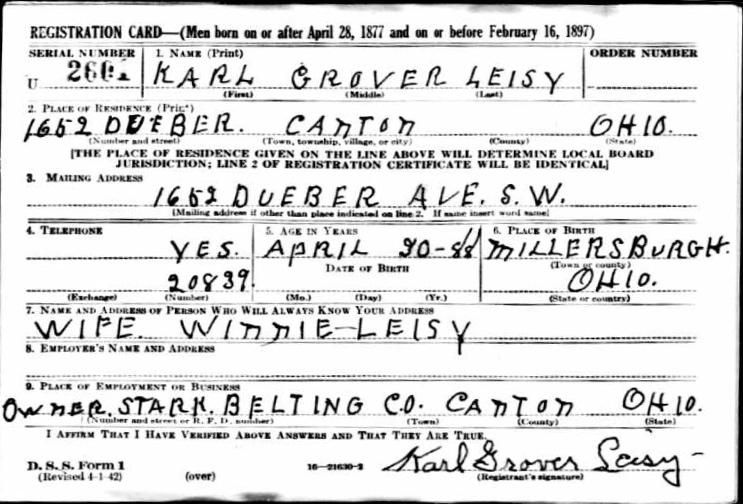 REGISTRATION CARD—(Men born on or after April 28, 1877 and on or before February 16, 1897)
SERIAL NUMBER 1. NAME (Print) ORDER NUMBER
U 2601 KARL GROVER LEISY
(First) (Middle) (Last)
2. PLACE OF RESIDENCE (Print)
1652 DUEBER. CANTON OHIO.
(Number and street) (Town, township, village, or city) (County) (State)
[THE PLACE OF RESIDENCE GIVEN ON THE LINE ABOVE WILL DETERMINE LOCAL BOARD
JURISDICTION; LINE 2 OF REGISTRATION CERTIFICATE WILL BE IDENTICAL]
3. MAILING ADDRESS
1652 DUEBER AVE. S.W.
[Mailing address if other than place indicated on line 2. If same insert word same]
4. TELEPHONE 5. AGE IN YEARS 6. PLACE OF BIRTH
YES. APRIL 20-88 MILLERSBURGH.
DATE OF BIRTH (Town or county)
20839. OHIO.
(Exchange) (Number) (Mo.) (Day) (Yr.) (State or country)
7. NAME AND ADDRESS OF PERSON WHO WILL ALWAYS KNOW YOUR ADDRESS
WIFE. WINNIE-LEISY
8. EMPLOYER'S NAME AND ADDRESS
9. PLACE OF EMPLOYMENT OR BUSINESS
OWNER. STARK. BELTING CO. CANTON OHIO.
(Number and street or R. F. D. number) (Town) (County) (State)
I AFFIRM THAT I HAVE VERIFIED ABOVE ANSWERS AND THAT THEY ARE TRUE.
D. S. S. Form 1 Karl Grover Leisy
(Revised 4-1-42) (over) 16—21630-2 (Registrant's signature)